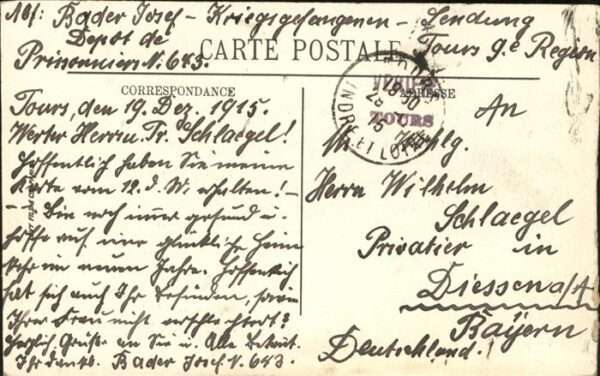 Abs: Bader Josef – Kriegsgefangenen – Sendung
Depot de
Prisonniers N. 683.
Tours 9.e Region
CARTE POSTALE
CORRESPONDANCE
ADRESSE
VÉRIFIÉ
TOURS
INDRE ET LOIRE
Tours, den 19. Dez. 1915.
Werter Herrn Fr. Schlaegel!
Hoffentlich haben Sie meine
Karte vom 12. d. M. erhalten! –
– Bin noch immer gesund u.
hoffe auf eine glückliche Heim
kehr im neuen Jahre. Hoffentlich
hat sich auch Ihr Befinden, sowie
Ihrer Frau nicht verschlechtert?
Herzlich Grüße an Sie u. Alle Bekannt.
Ihr dankb. Bader Josef. N. 683.
An
Wohlg.
Herrn Wilhelm
Schlaegel
Privatier in
Diessen a/A
Bayern
Deutschland!